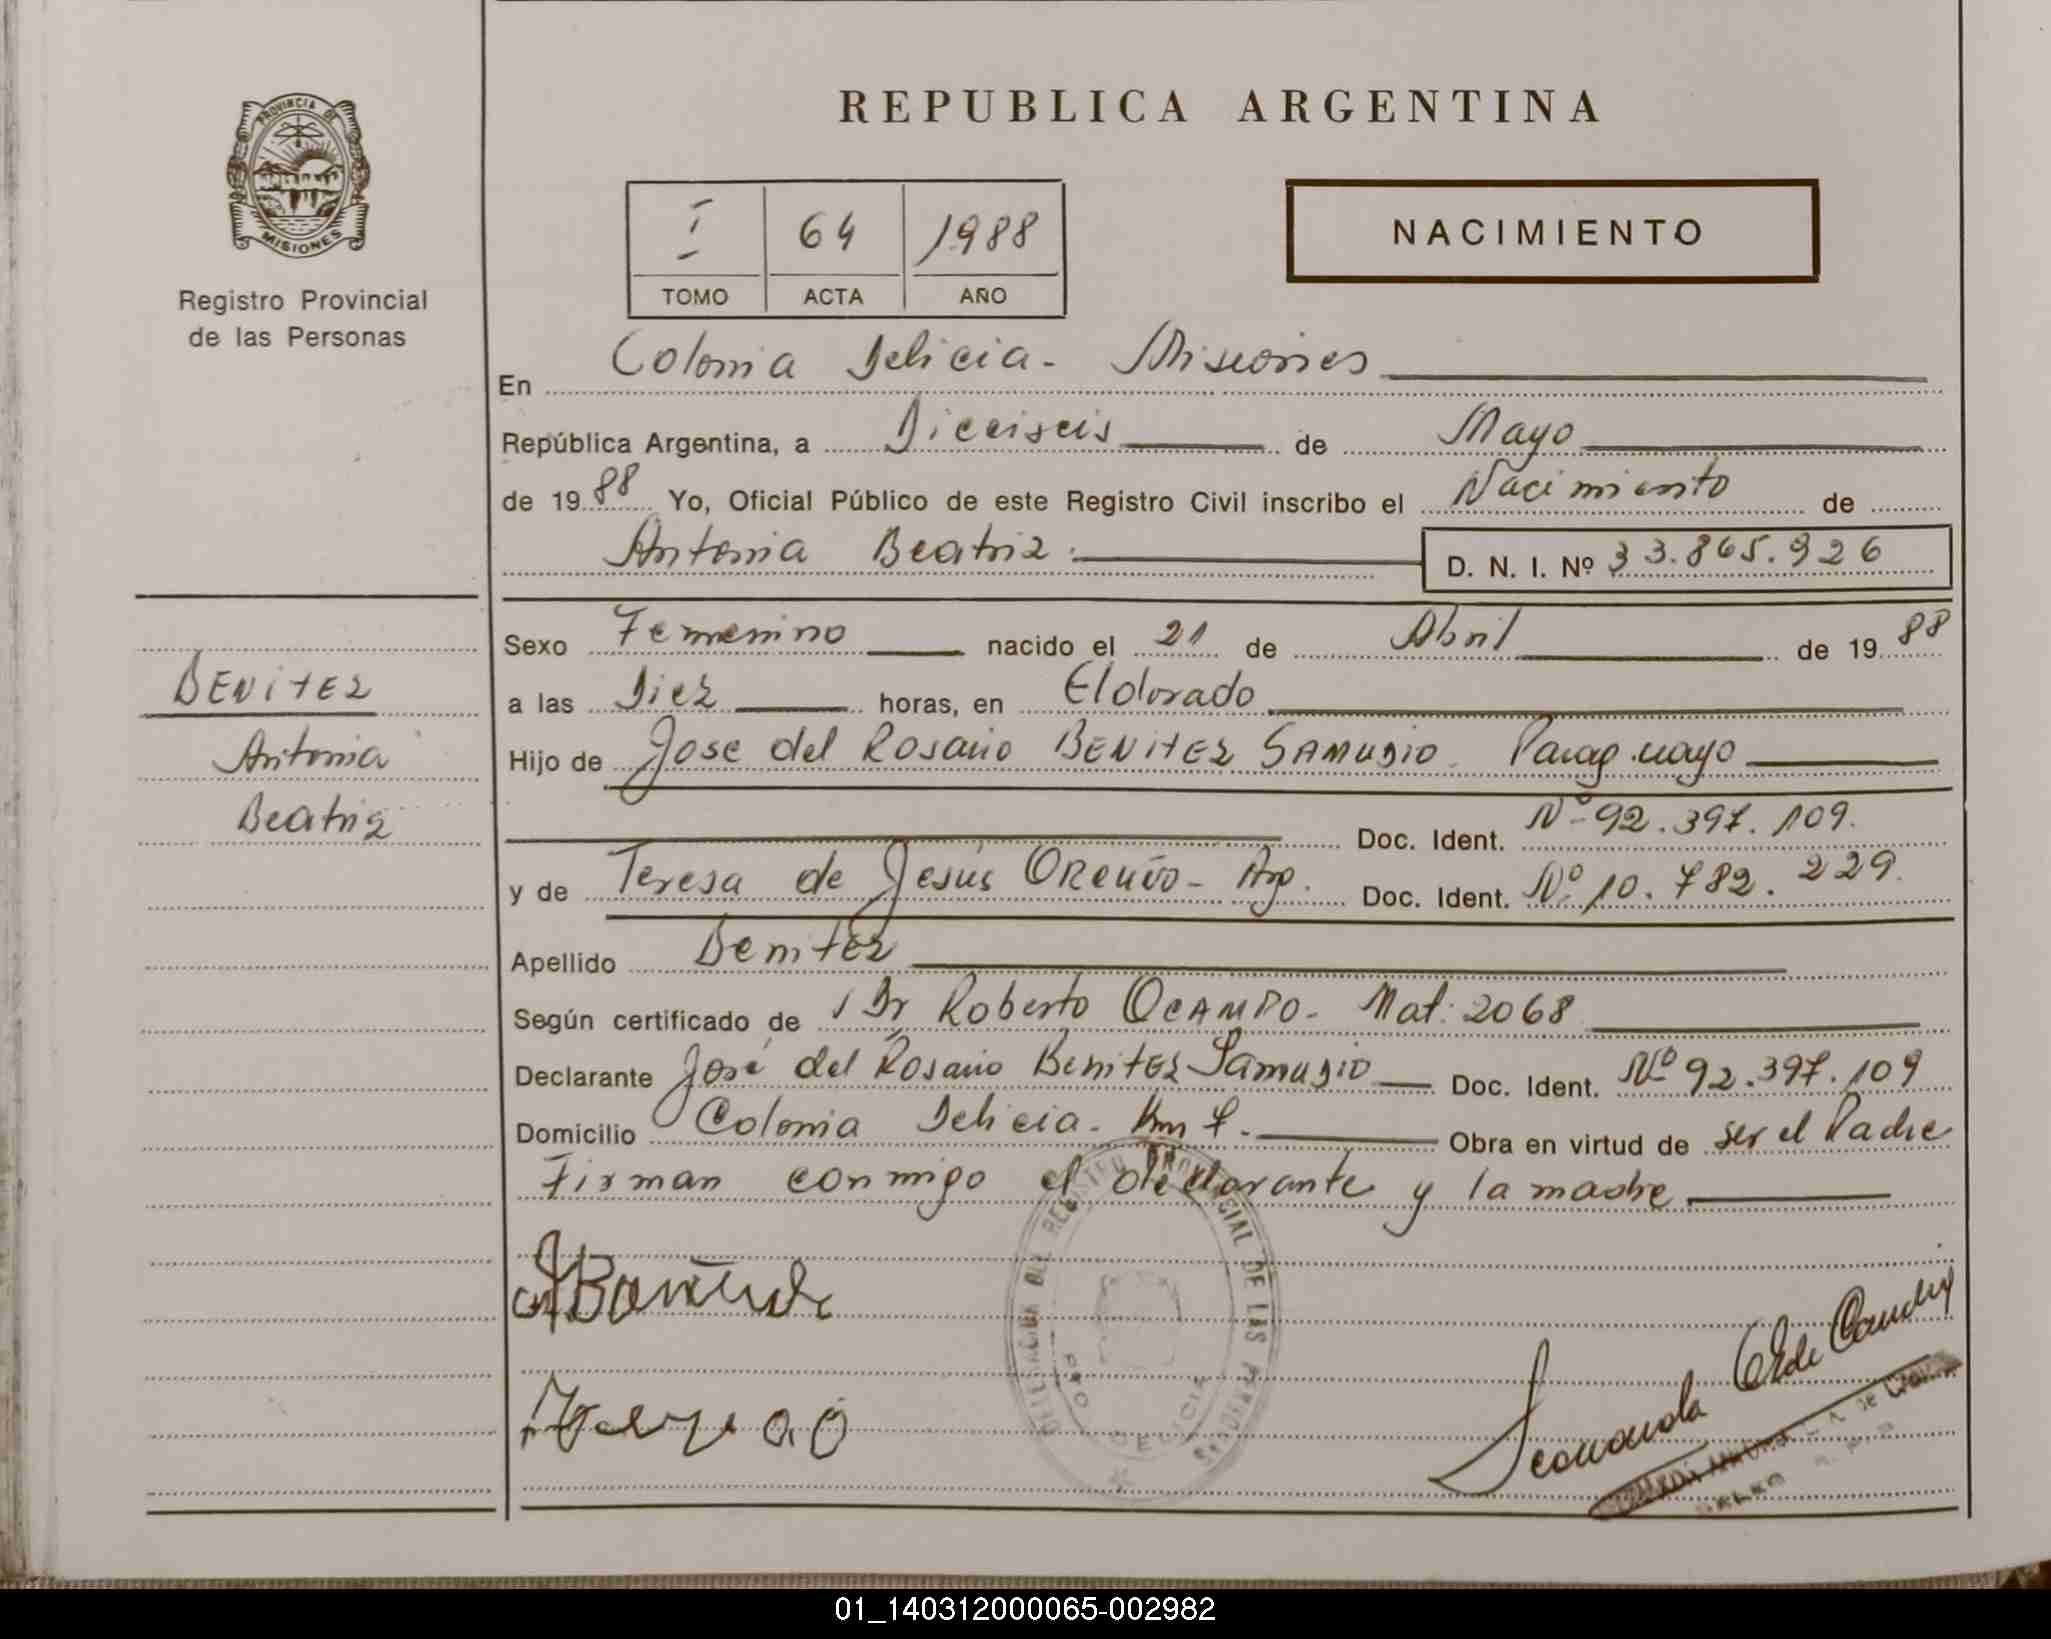 PROVINCIA DE
MISIONES
Registro Provincial
de las Personas
REPUBLICA ARGENTINA
I 64 1988
TOMO ACTA AÑO
NACIMIENTO
En Colonia Delicia - Misiones
República Argentina, a Dieciseis de Mayo
de 1988 Yo, Oficial Público de este Registro Civil inscribo el Nacimiento de
Antonia Beatriz. D. N. I. Nº 33.865.926
BENITEZ
Antonia
Beatriz
Sexo Femenino nacido el 21 de Abril de 1988
a las Diez horas, en Eldorado
Hijo de Jose del Rosario BENITEZ SAMUDIO. Paraguayo
Doc. Ident. Nº 92.397.109.
y de Teresa de Jesús - Arg. Doc. Ident. Nº 10.782.229.
Apellido Benitez
Según certificado de Dr Roberto OCAMPO - Mat: 2068
Declarante José del Rosario Benitez Samudio Doc. Ident. Nº 92.397.109
Domicilio Colonia Delicia - Km 7. Obra en virtud de ser el Padre
Firman conmigo el declarante y la madre
DELEGACION DEL REGISTRO PROVINCIAL DE LAS PERSONAS
DELICIA
01_140312000065-002982